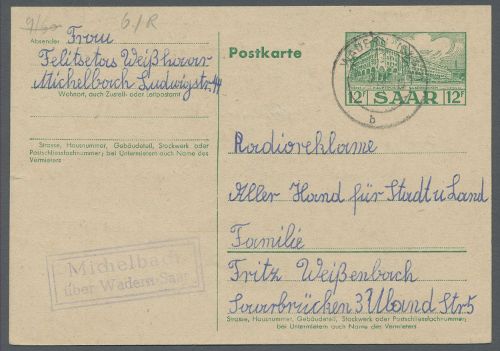 9/60 6./R
Absender: Frau
Felitsetas Weißhaar
Michelbach Ludwigstr. 44
Wohnort, auch Zustell- oder Leitpostamt
Strasse, Hausnummer, Gebäudeteil, Stockwerk oder
Postschliessfachnummer; bei Untermietern auch Name des
Vermieters
Michelbach
über Wadern-Saar
Postkarte
WADERN (SAAR)
b
12F SAAR 12F
Radioreklame
Aller Hand für Stadt u Land
Familie
Fritz Weißenbach
Saarbrücken 3 Uland Str 5
Strasse, Hausnummer, Gebäudeteil, Stockwerk oder Postschliessfachnummer;
bei Untermietern auch Name des Vermieters